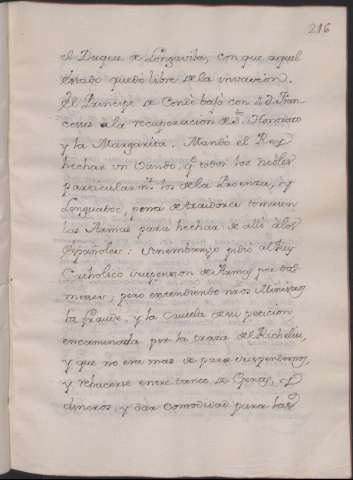 216
el Duque de Longavila, con que aquel
estado quedó libre de la invasion.
El Principe de Condè bajó con d. d. Fran
ceses à la recuperacion de S.to Honorato
y la Margarita. Mandó el Rey
hechar un Vando, q.e todos los nobles
particularm.te los de la Proenza, y
Lenguadoc, pena de traidores tomasen
las Armas para hechar de alli à los
Españoles: sinembargo pidió al Rey
Catholico suspension de Armas por dos
meses; pero entendiendo n.ros Ministros
la fraude, y la Cautela de su peticion,
encaminada por la traza de Richelieu,
y que no era mas de para suspendernos,
y rehacerse entre tanto de Gente, y
dineros, y dar comodidad para las